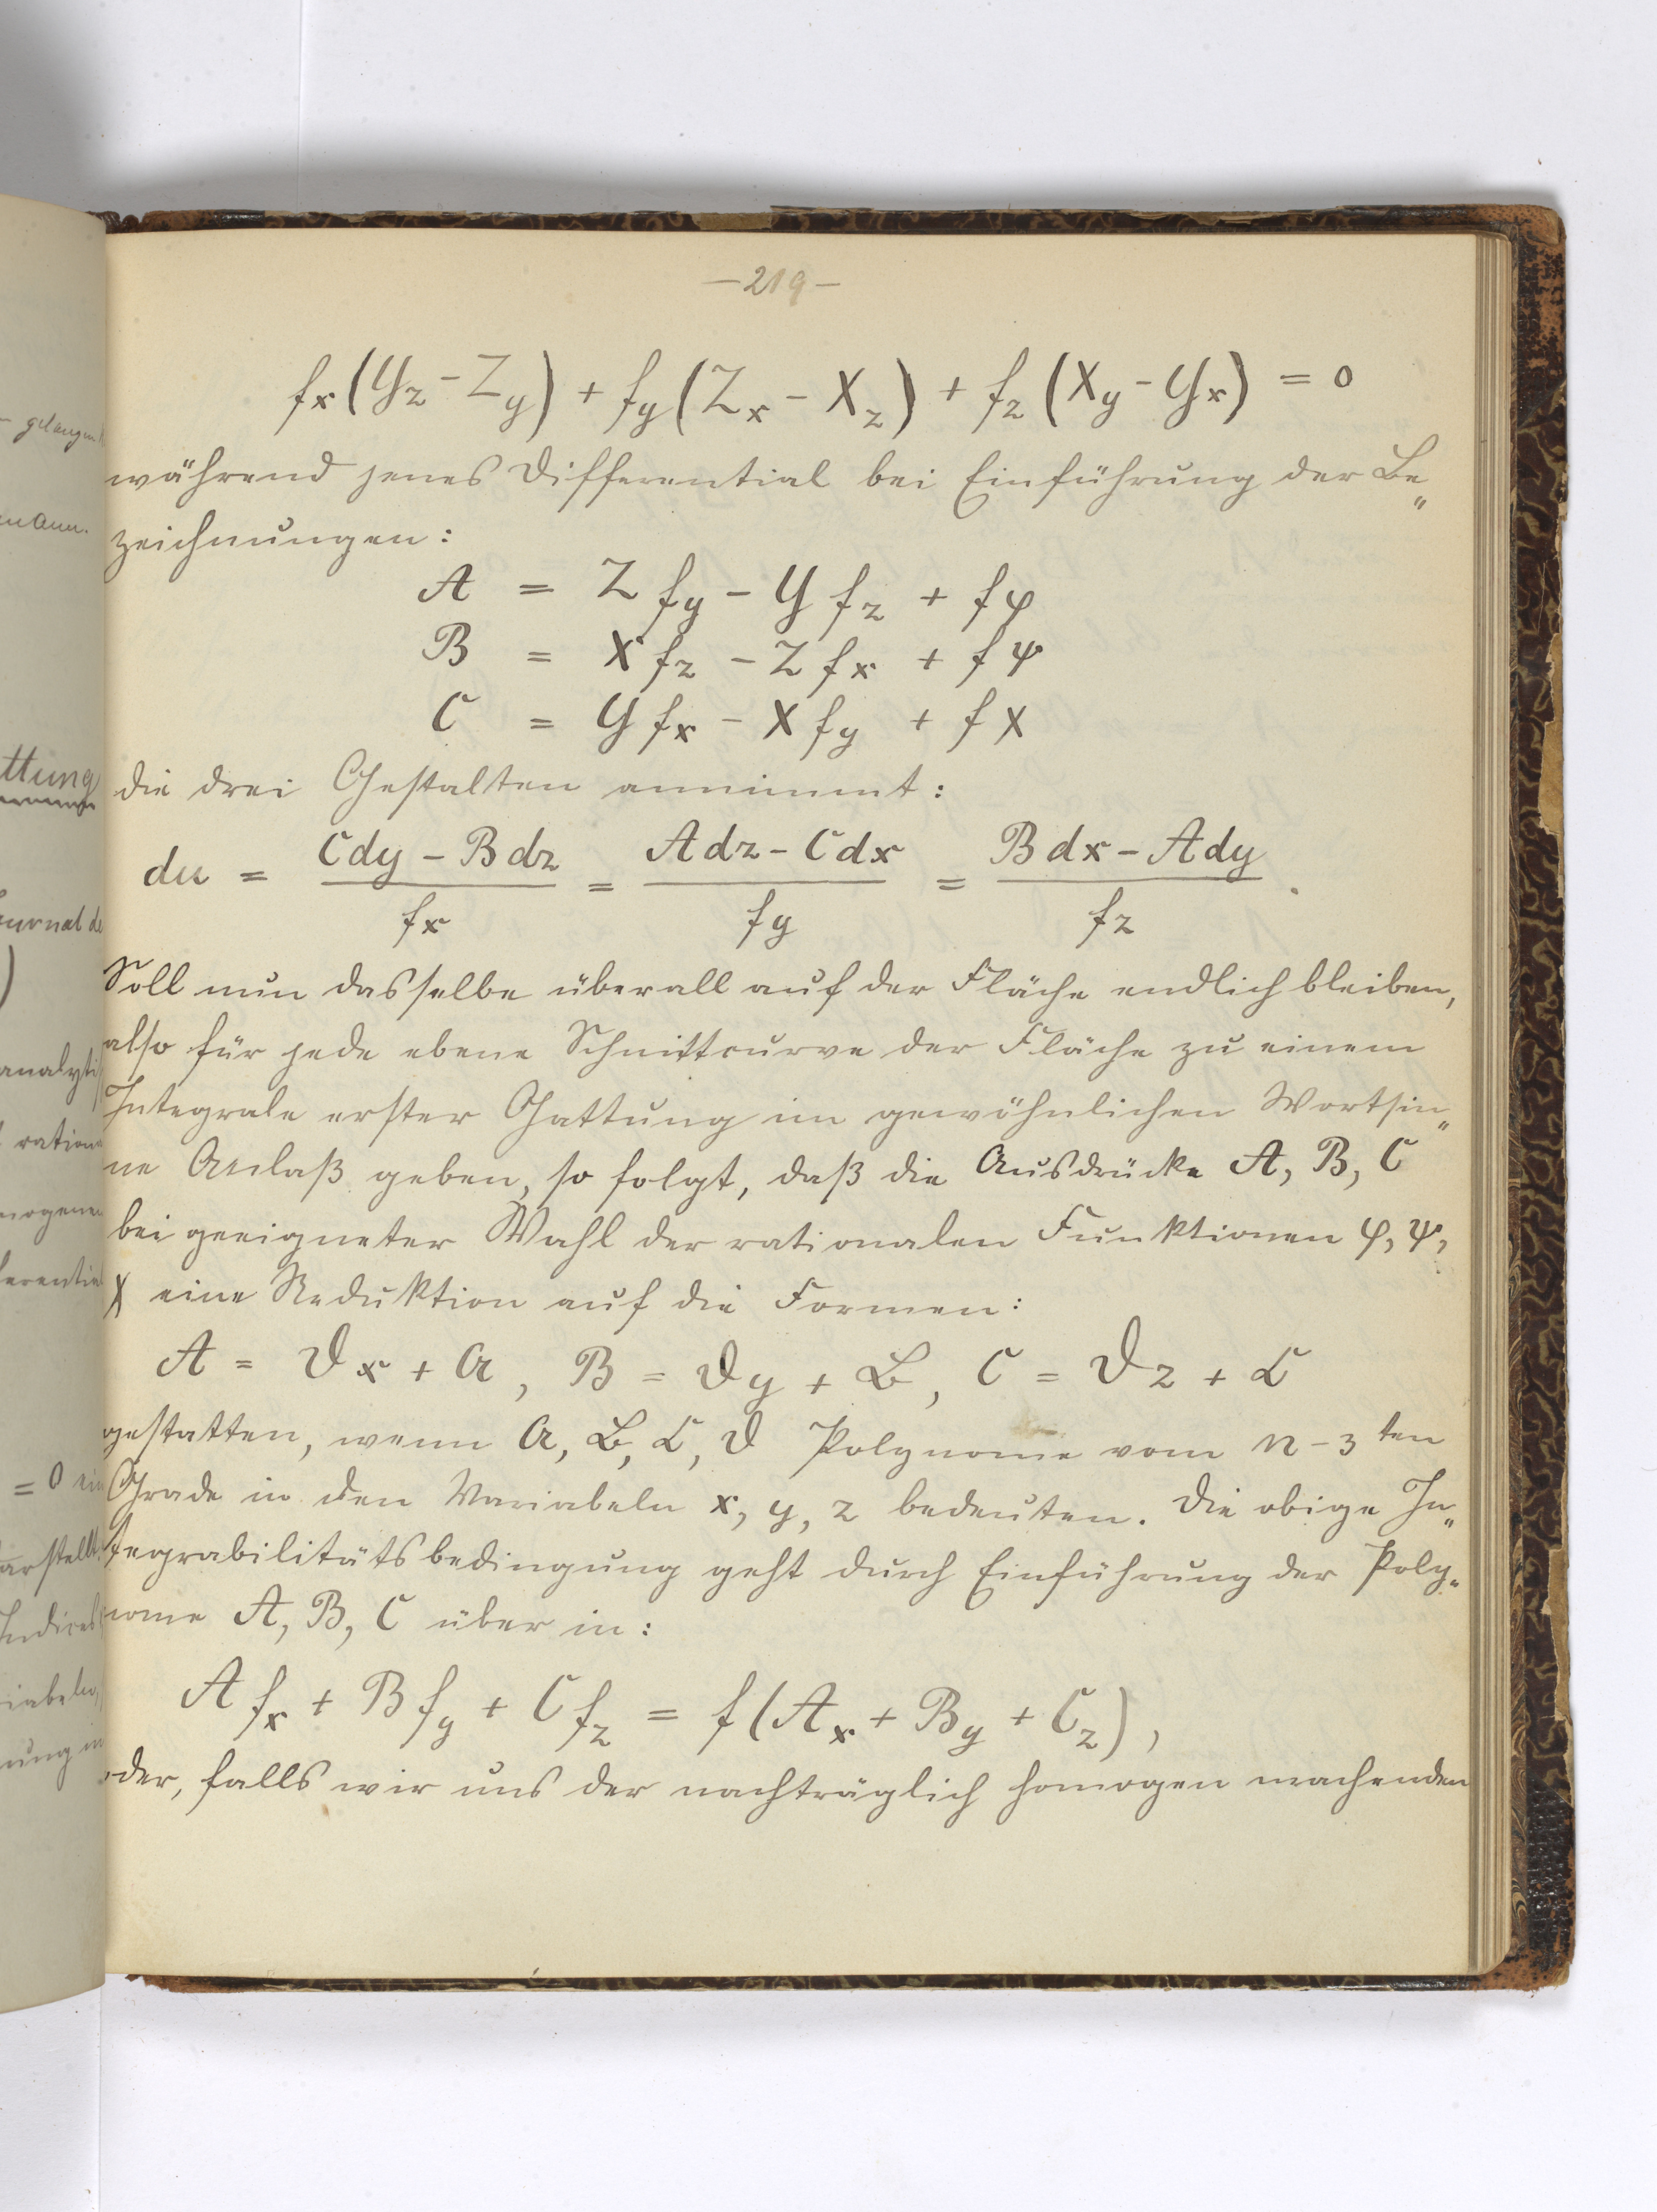 – 219 –
fx (Yz - Zy) + fy (Zx - Xz) + fz (Xy - Yx) = 0
während jenes Differential bei Einführung der Be„
zeichnungen:
A = Z fy - Y fz + fφ
B = X fz - Z fx + fψ
C = Y fx - X fy + fχ
die drei Gestalten annimmt:
du = (Cdy - Bdz)/fx = (Adz - Cdx)/fy = (Bdx - Ady)/fz .
Soll nun dasselbe überall auf der Fläche endlich bleiben,
also für jede ebene Schnittcurve der Fläche zu einem
Integrale erster Gattung im gewöhnlichen Wortsin„
ne Anlaß geben, so folgt, daß die Ausdrücke A, B, C
bei geeigneter Wahl der rationalen Funktionen φ, ψ,
χ eine Reduktion auf die Formen:
A = 𝔇x + 𝔄, B = 𝔇y + 𝔅, C = 𝔇z + ℭ
gestatten, wenn 𝔄, 𝔅, ℭ, 𝔇 Polynome vom n-3ten
Grade in den Variabeln x, y, z bedeuten. Die obige In„
tegrabilitätsbedingung geht durch Einführung der Poly„
nome A, B, C über in:
A fx + B fy + C fz = f (Ax + By + Cz),
oder, falls wir uns der nachträglich homogen machenden